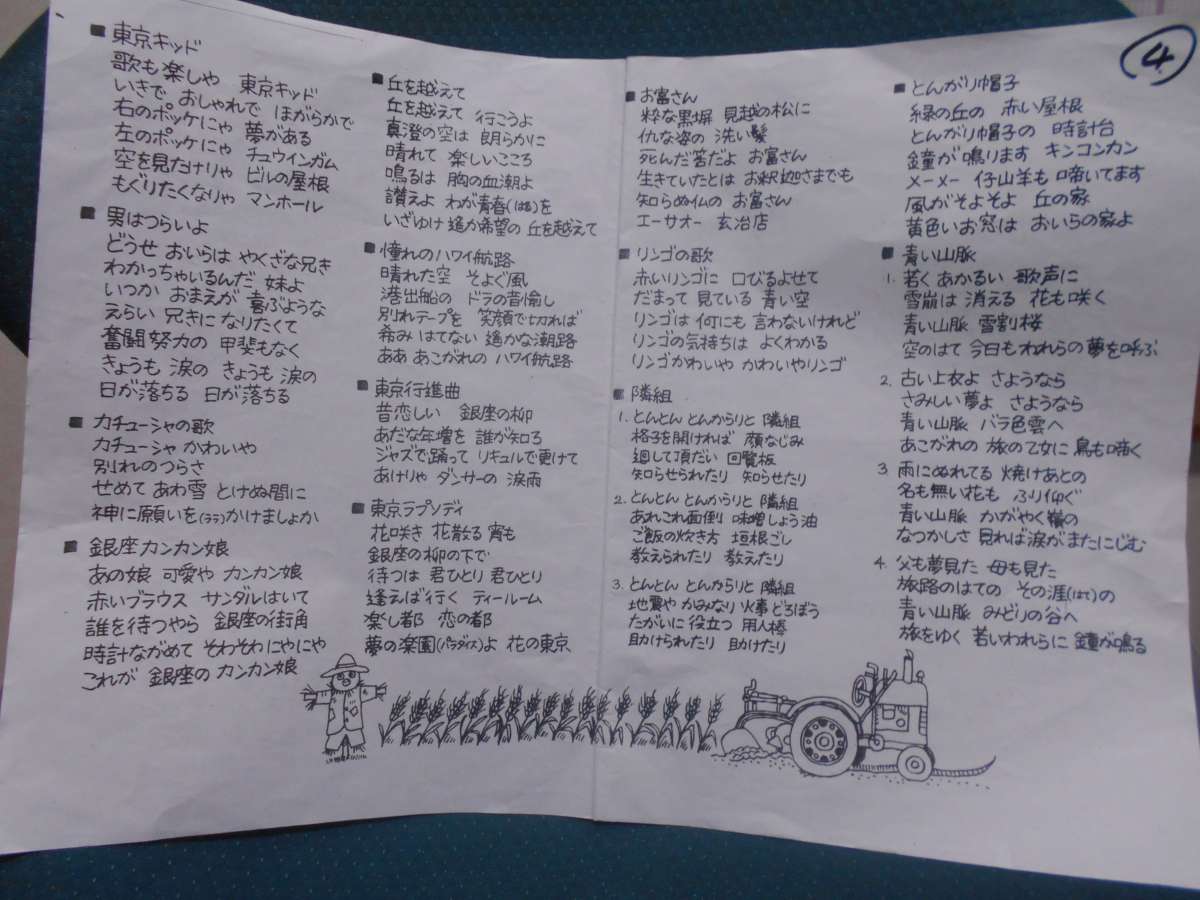 ④
■ 東京キッド
歌も楽しや 東京キッド
いきで おしゃれで ほがらかで
右のポッケにゃ 夢がある
左のポッケにゃ チュウインガム
空を見たけりゃ ビルの屋根
もぐりたくなりゃ マンホール
■ 男はつらいよ
どうせ おいらは やくざな兄き
わかっちゃいるんだ 妹よ
いつか おまえが 喜ぶような
えらい 兄きに なりたくて
奮闘努力の 甲斐もなく
きょうも 涙の きょうも 涙の
日が落ちる 日が落ちる
■ カチューシャの歌
カチューシャ かわいや
別れの つらさ
せめて あわ雪 とけぬ間に
神に願いを(ララ)かけましょか
■ 銀座カンカン娘
あの娘 可愛や カンカン娘
赤いブラウス サンダルはいて
誰を待つやら 銀座の街角
時計ながめて そわそわにやにや
これが 銀座の カンカン娘
■ 丘を越えて
丘を越えて 行こうよ
真澄の空は 朗らかに
晴れて 楽しいこころ
鳴るは 胸の血潮よ
讃えよ わが青春(はる)を
いざゆけ 遙か希望の 丘を越えて
■ 憧れのハワイ航路
晴れた空 そよぐ風
港出船の ドラの音愉し
別れテープを 笑顔で切れば
希み はてない 遙かな潮路
ああ あこがれの ハワイ航路
■ 東京行進曲
昔恋しい 銀座の柳
あだな年増を 誰が知ろ
ジャズで踊って リキュルで更けて
あけりゃ ダンサーの 涙雨
■ 東京ラプソディ
花咲き 花散る 宵も
銀座の柳の下で
待つは 君ひとり 君ひとり
逢えば行く ティールーム
楽し都 恋の都
夢の楽園(パラダイス)よ 花の東京
■ お富さん
粋な黒塀 見越の松に
仇な姿の 洗い髪
死んだ筈だよ お富さん
生きていたとは お釈迦さまでも
知らぬ仏の お富さん
エーサオー 玄冶店
■ リンゴの歌
赤いリンゴに 口びるよせて
だまって 見ている 青い空
リンゴは 何にも 言わないけれど
リンゴの気持ちは よくわかる
リンゴかわいや かわいやリンゴ
■ 隣組
1. とんとん とんからりと 隣組
格子を開ければ 顔なじみ
廻して頂だい 回覧板
知らせられたり 知らせたり
2. とんとん とんからりと 隣組
あれこれ面倒 味噌しょう油
ご飯の炊き方 垣根ごし
教えられたり 教えたり
3. とんとん とんからりと 隣組
地震や かみなり 火事 どろぼう
たがいに 役立つ 用人棒
助けられたり 助けたり
■ とんがり帽子
緑の丘の 赤い屋根
とんがり帽子の 時計台
鐘が鳴ります キンコンカン
メーメー 仔山羊も 啼いてます
風がそよそよ 丘の家
黄色いお窓は おいらの家よ
■ 青い山脈
1. 若く あかるい 歌声に
雪崩は 消える 花も咲く
青い山脈 雪割桜
空のはて 今日も われらの 夢を呼ぶ
2. 古い上衣よ さようなら
さみしい夢よ さようなら
青い山脈 バラ色雲へ
あこがれの 旅の乙女に 鳥も啼く
3 雨にぬれてる 焼けあとの
名も無い花も ふり仰ぐ
青い山脈 かがやく嶺の
なつかしさ 見れば涙が またにじむ
4. 父も夢見た 母も見た
旅路のはての その涯(はて)の
青い山脈 みどりの谷へ
旅をゆく 若いわれらに 鐘が鳴る